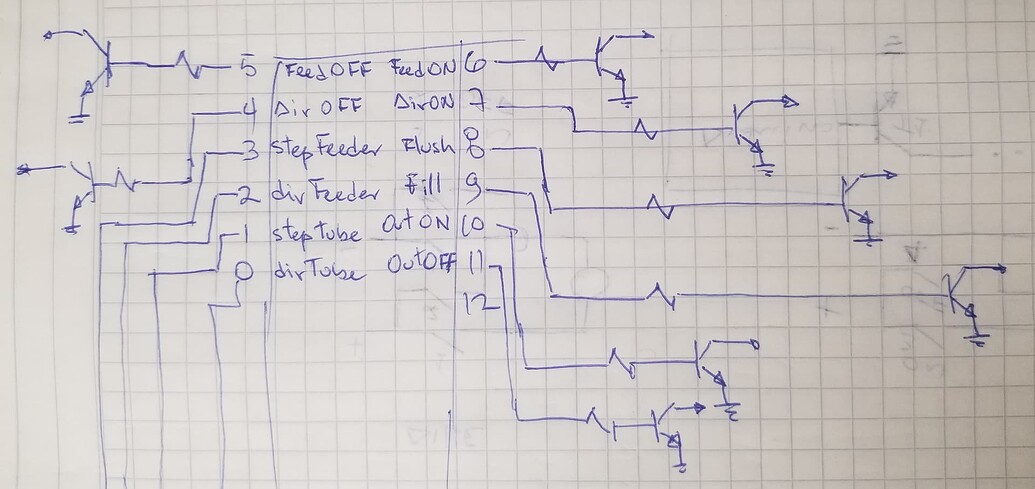 5 FeedOFF FeedON 6
4 DirOFF DirON 7
3 stepFeeder Flush 8
2 dirFeeder Fill 9
1 stepTube OutON 10
0 dirTube OutOFF 11
12